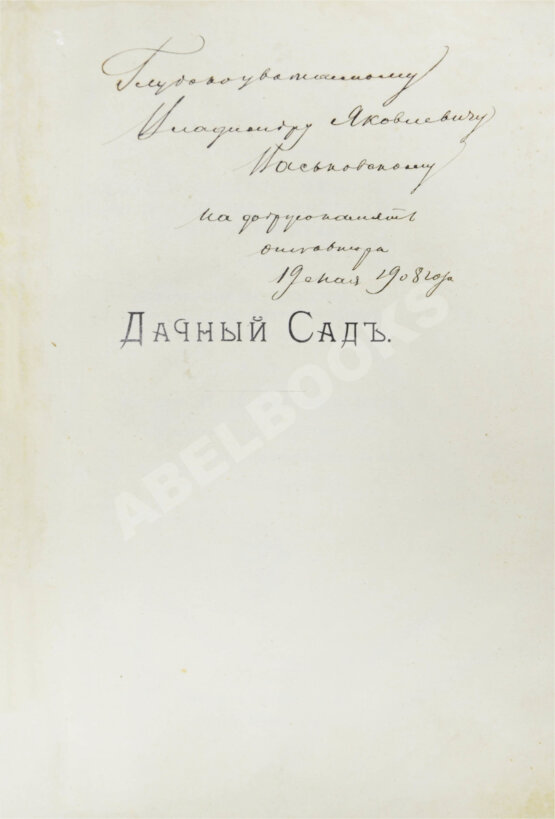 Глубокоуважаемому
Владимиру Яковлевичу
Паськовскому
на добрую память
от автора
19 мая 1908 года
Дачный Садъ.
ABELBOOKS